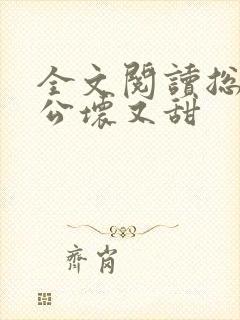 全文閱讀总
公壞又甜
齊肖